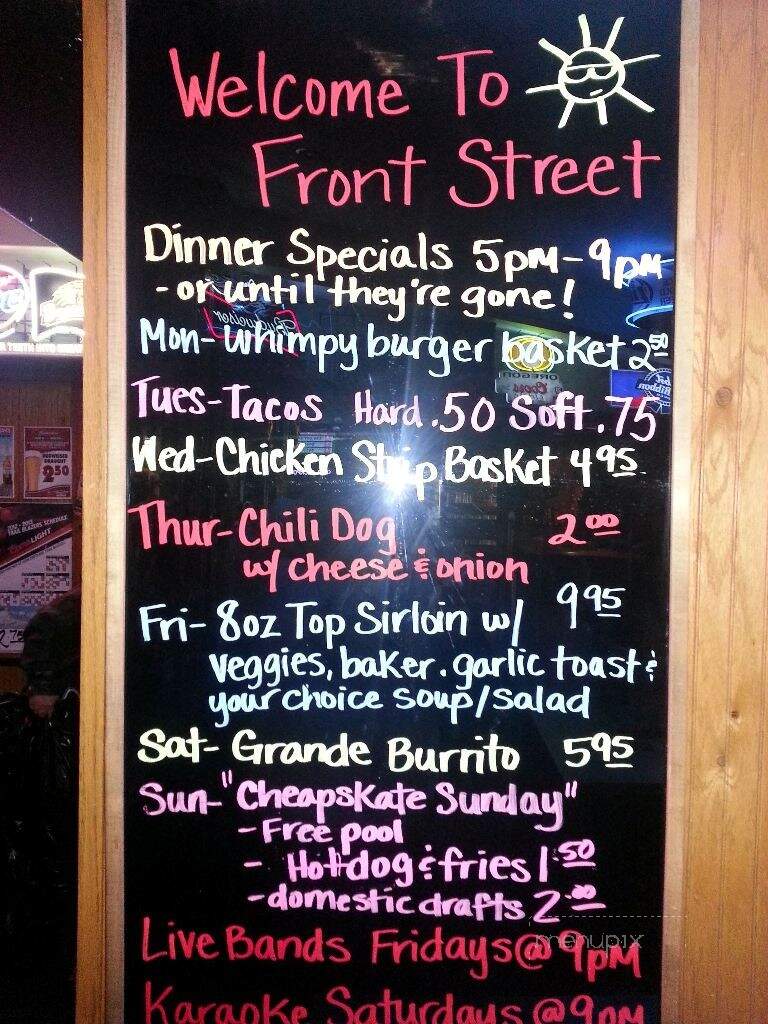 Welcome To
Front Street
Dinner Specials 5pm-9pm
- or until they're gone!
Mon- Whimpy burger basket 2 50
Tues-Tacos Hard .50 Soft .75
Wed-Chicken Strip Basket 4 95
Thur-Chili Dog 2 00
w/ cheese & onion
Fri- 8oz Top Sirloin w/ 9 95
veggies, baker. garlic toast &
your choice soup/salad
Sat- Grande Burrito 5 95
Sun- "Cheapskate Sunday"
- Free pool
- Hotdog & fries 1.50
- domestic drafts 2.00
Live Bands Fridays @ 9pm
Karaoke Saturdays @ 9pm
menupix
Budweiser
OREGON
Coors
Ribbon
BUDWEISER
DRAUGHT
2 50
TRAIL BLAZERS SCHEDULE
LIGHT